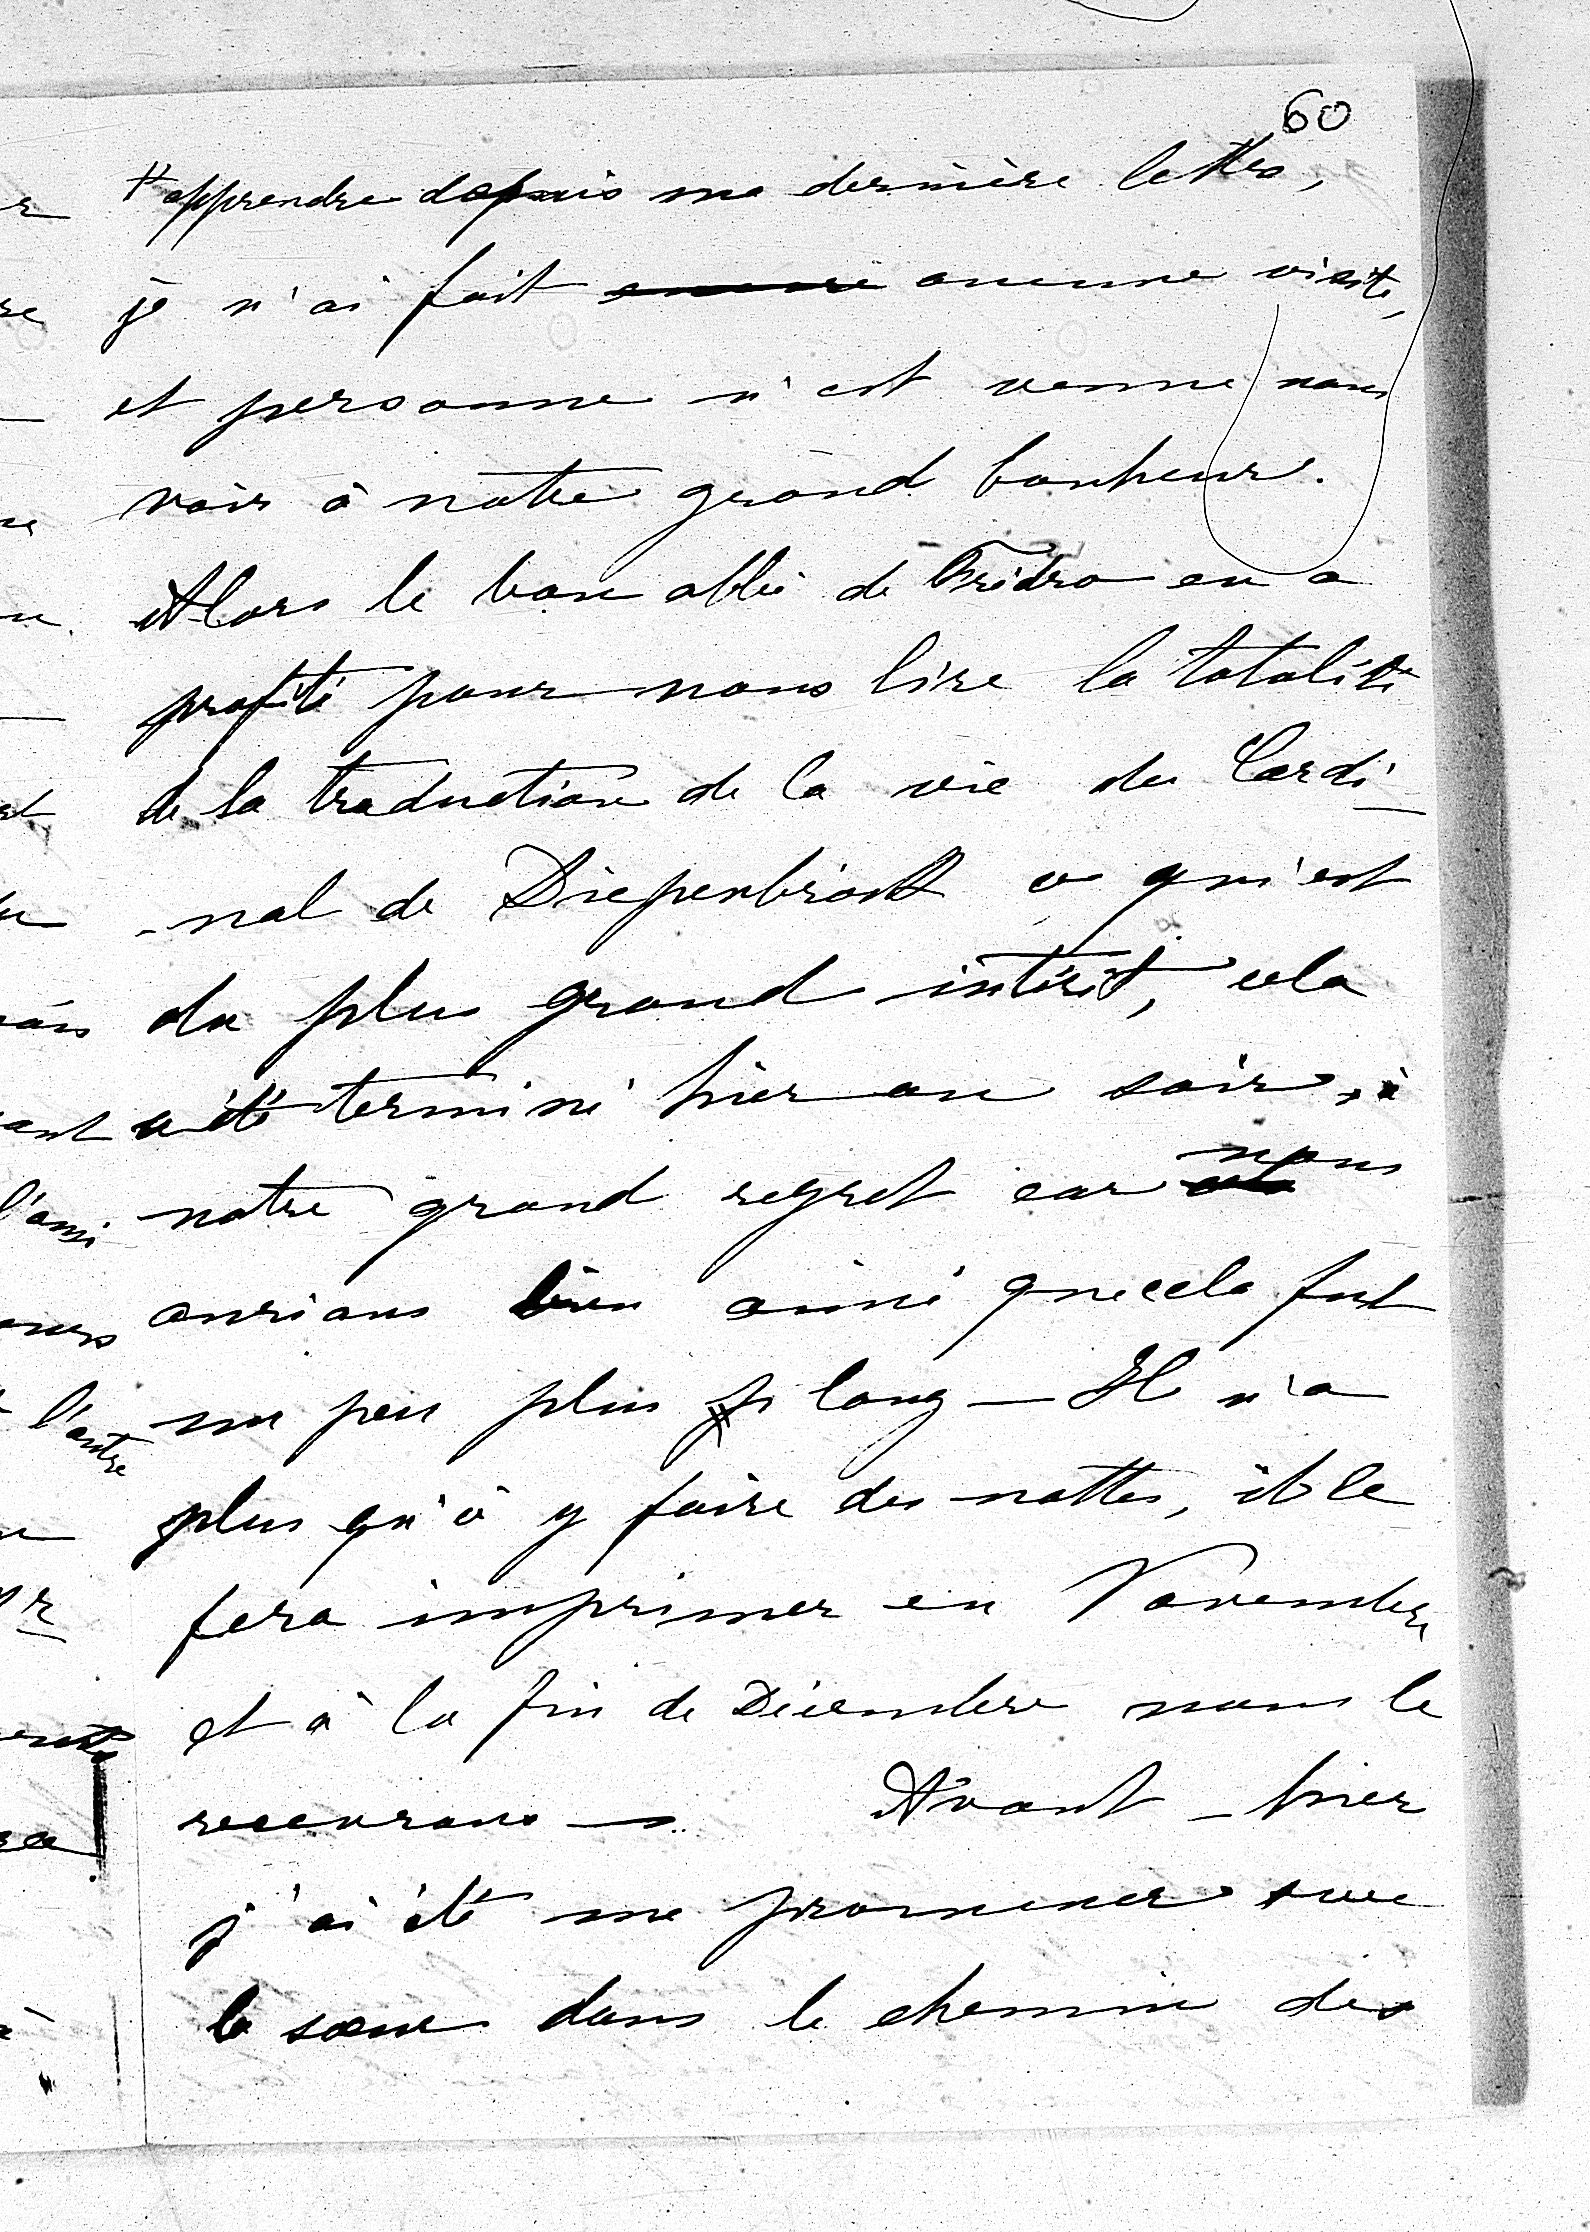 60
t'apprendre depuis ma dernière lettre,
je n'ai fait aucune visite,
et personne n'est venue nous
voir à notre grand bonheur.
Alors le bon abbé de Frédro en a
profité pour nous lire la totalité
de sa traduction de la vie du Cardi-
-nal de Diepenbrock ce qui est
du plus grand intérêt, cela
a été terminé hier au soir, à
notre grand regret car nous
aurions bien aimé que cela fut
un peu plus long — Il n'a
plus qu'à y faire des nottes, il le
fera imprimer en Novembre
et à la fin de Décembre nous le
recevrons — Avant-hier
j'ai été me promener avec
la sœur dans le chemin des